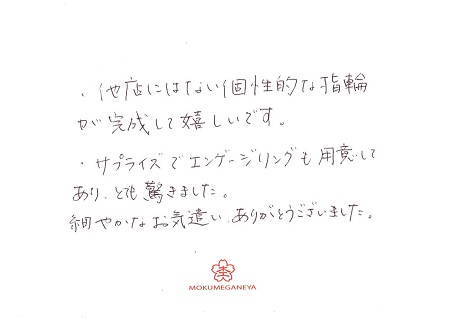 ・他店にはない個性的な指輪
が完成して嬉しいです。
・サプライズでエンゲージリングも用意して
あり、とても驚きました。
細やかなお気遣い、ありがとうございました。
MOKUMEGANEYA